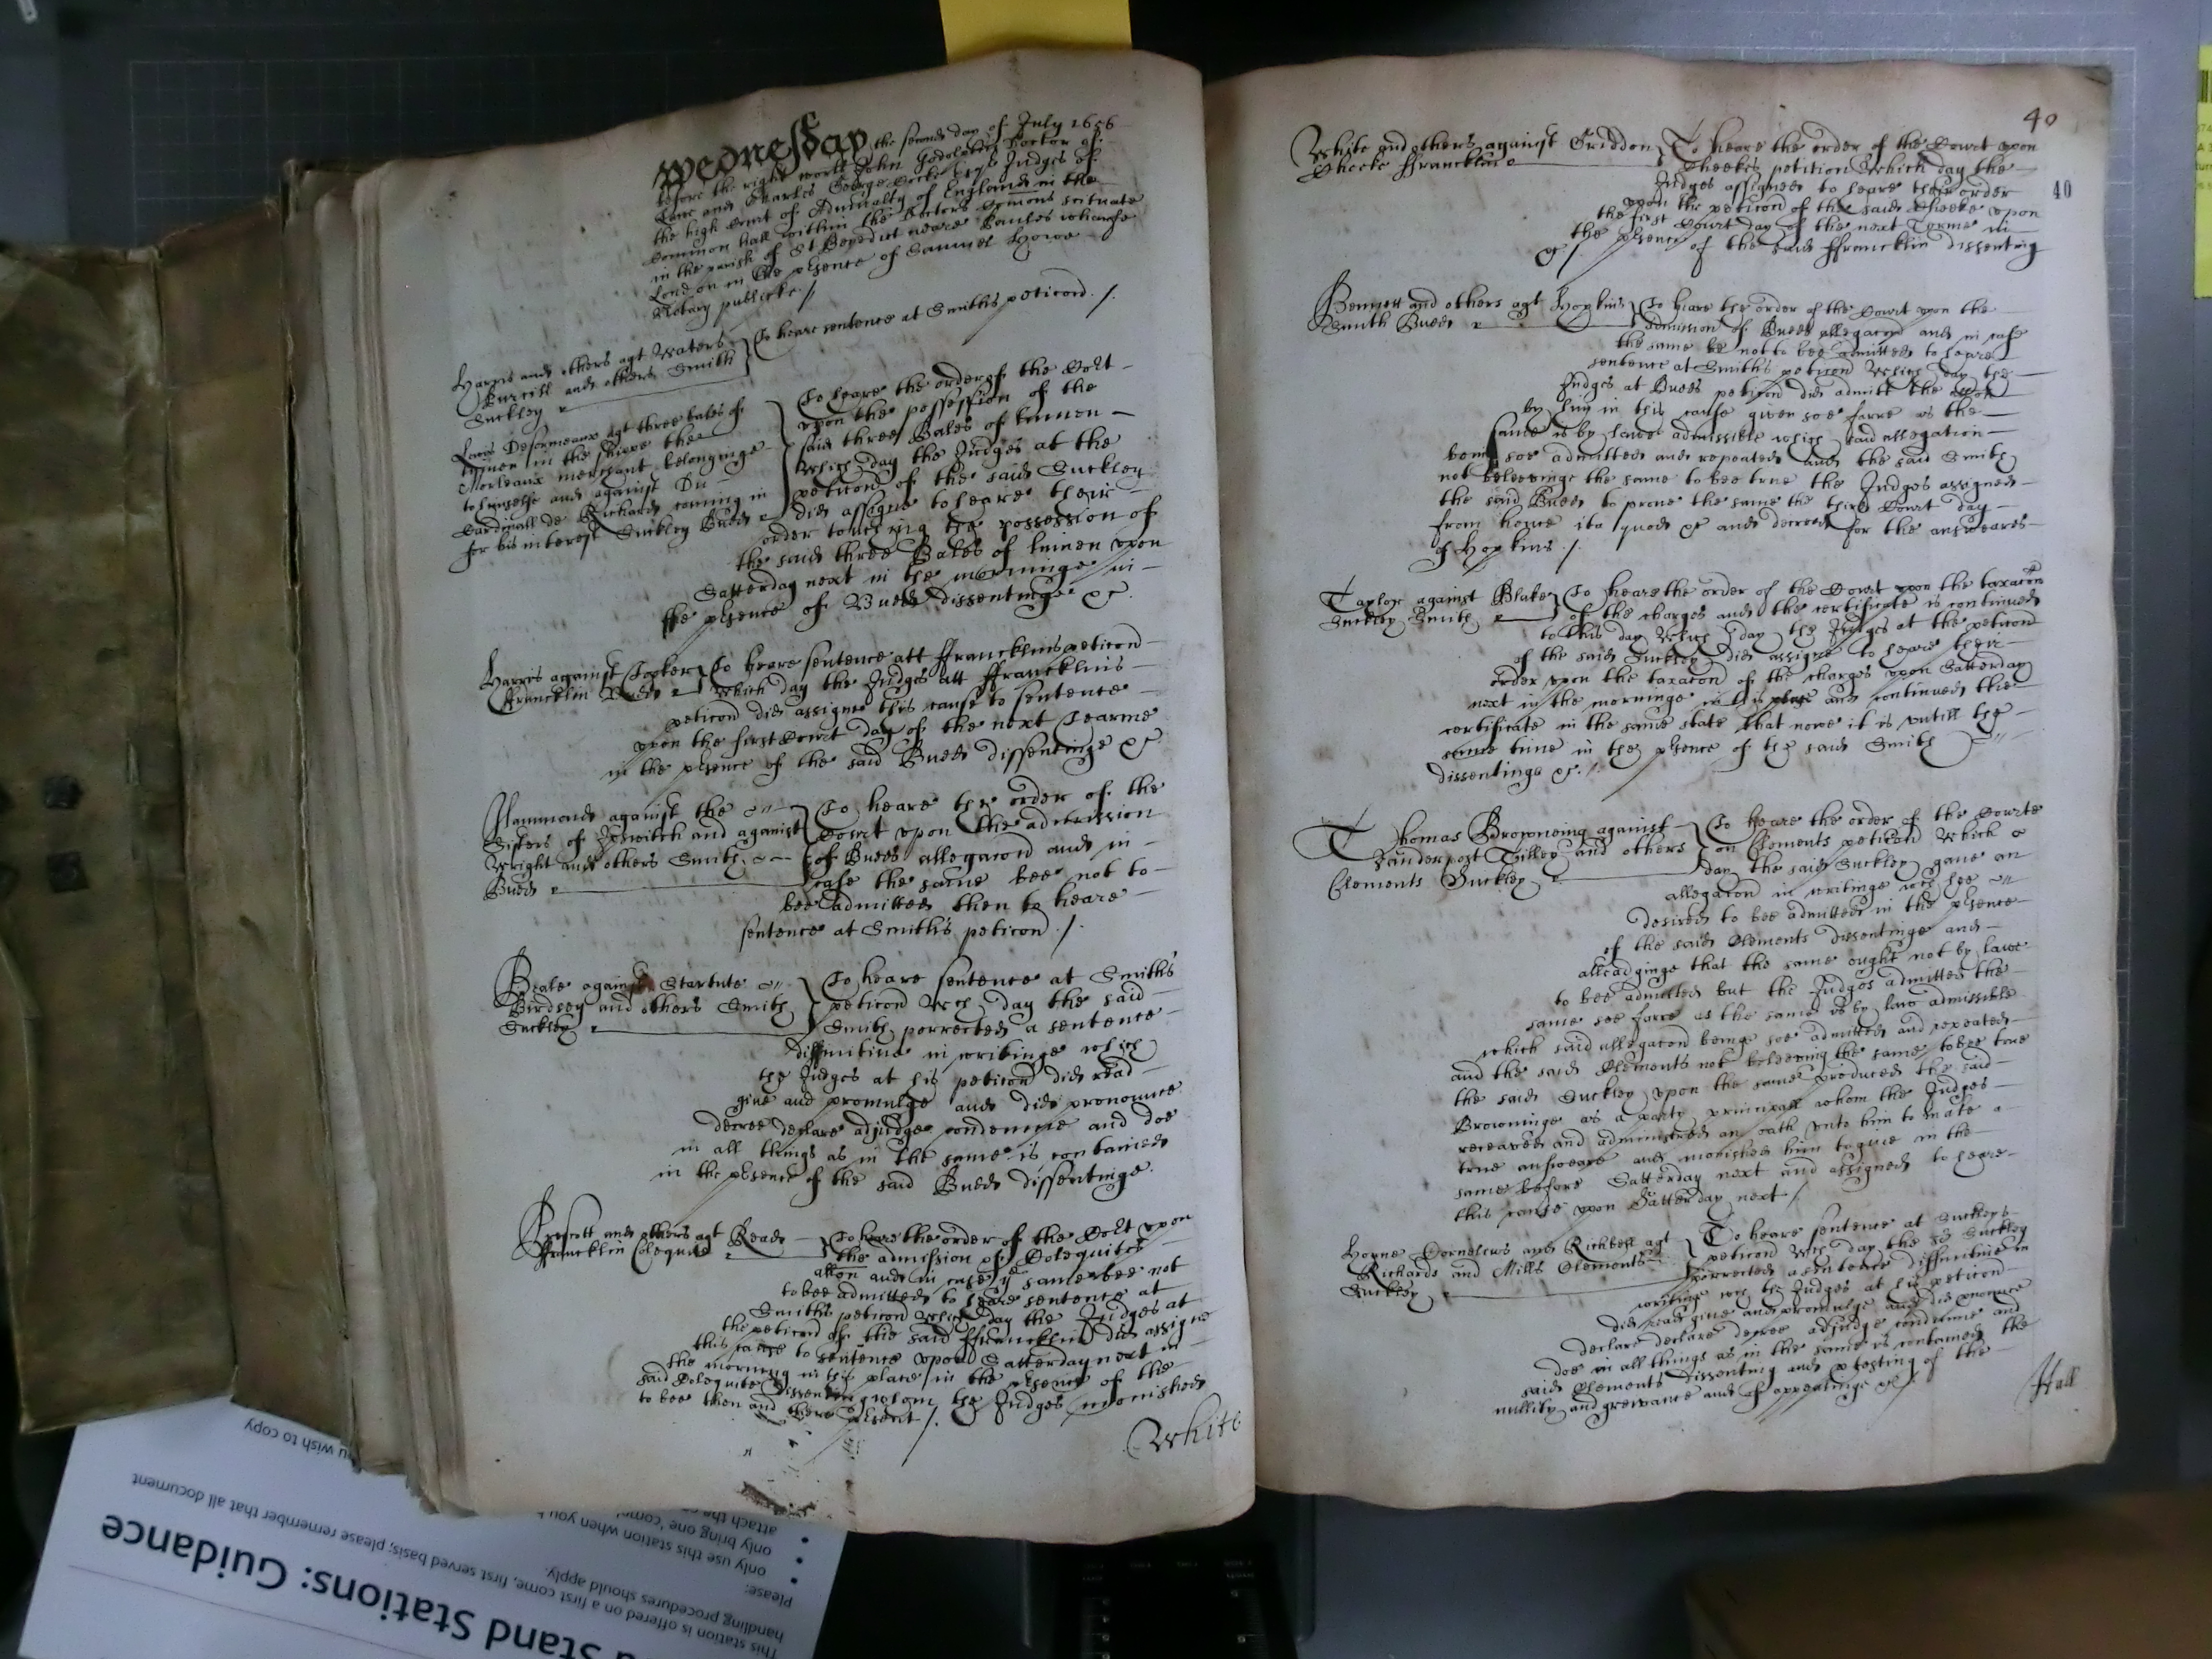 Wednesday the second day of July 1656
before the right worll John Godolphin Doctor of
Lawe and Charles George Cocke Esqs Judges of
the high Court of Admiralty of England in the
Common hall within the Doctors Comons scituate
in the parish of St Benedict neare Paules wharfe
London in the pſence of Samuel Howe
Notary publicke ./
Harris and others agt Waters
Burrill and others Smith
Suckley
To heare sentence at Smiths peticon ./.
Lewis Desormeaux agt three bales of
lynnen in the shippe the
Morleaux merchant belonginge
to himselfe and against Du
Cardinall de Richards coming in
for his interest Suckley Budd
To heare the order of the Cort
upon the possession of the
said three Bales of linnen
Which day the Judges at the
peticon of the said Suckley
did assigne to heare their
order touching the possession of
the said three Bales of linnen upon
Satterday next in the morninge in
the pſence of Budd dissentinge &c.
Harris against Cooker
Francklin Budd
To heare sentence att Francklins peticon
Which day the Judges att Francklins
peticon did assigne this cause to sentence
upon the first Court day of the next Tearme
in the pſence of the said Budd dissentinge &c
Hammond against the
Sisters of Ipswitch and against
Wright and others Smith
Budd
To heare the order of the
Court upon the admission
of Budds allegacon and in
case the same bee not to
bee admitted then to heare
sentence at Smiths peticon ./
Beale against Startute
Birdsey and others Smith
Suckley
To heare sentence at Smiths
peticon Wch day the said
Smith porrected a sentence
diffinitive in writinge which
the Judges at his peticon did read
give and promulge and did pronounce
decree declare adjudge condemne and doe
in all things as in the same is contained
in the pſence of the said Budd dissentinge
Prescott and others agt Reade
Francklin Colequite
To heare the order of the Cort upon
the admission of Colequites
allon and in case ye same bee not
to bee admitted to heare sentence at
Smiths peticon Which day the Judges at
the peticon of the said Francklin did assigne
this cause to sentence upon Satterday next in
the morning in this place in the pſence of the
said Colequite dissenting whom the Judges monished
to bee then and there pſent ./
White
40
40
White and others against Griddon
Cheeke Francklin
To heare the order of the Court upon
Cheekes peticon Which day the
Judges assigned to heare their order
upon the peticon of the said Cheeke upon
the first Court day of the next Terme in
the pſence of the said Francklin dissenting
&c /.
Bennett and others agt Hopkins
Smith Budd
To heare the order of the Court upon the
admission of Budds allegacon and in case
the same be not to bee admitted to heare
sentence at Smiths peticon Which day the
Judges at Budds peticon did admitt the allon
by him in this cause given soe farre as the
same is by lawe admissible which said allegation
being soe admitted and repeated and the said Smith
not beleevinge the same to bee true the Judges assigned
the said Budd to prove the same the third Court day
from hence ita quod &c and decreed for the answeares
of Hopkins ./
Taylor against Blake
Suckley Smith
To heare the order of the Court upon the taxacon
of the charges and the certificate is continued
to this day Which day the Judges at the peticon
of the said Suckley did assigne to heare their
order upon the taxacon of the charges upon Satterday
next in the morninge in this place and continued the
certificate in the same state that nowe it is untill the
same time in the pſence of the said Smith
dissentinge &c. /.
Thomas Browneing against
Vanderpost Tilley and others
Clements Suckley
To heare the order of the Courte
on Clements peticon Which
day the said Suckley gave an
allegacon in writinge wch hee
desired to bee admitted in the pſence
of the said Clements dissentinge and
alleadginge that the same ought not by lawe
to bee admitted but the Judges admitted the
same soe farre as the same is by law admissible
which said allegacon beinge soe admitted and repeated
and the said Clements not beleeving the same to bee true
the said Suckley upon the same produced the said
Browninge as a party principall whom the Judges
receaved and administred an oath unto him to make a
true answeare and monished him to give in the
same before Satterday next and assigned to heare
this cause upon Satterday next /.
Horne Cornelius and Richbell agt
Richards and Mills Clements
Suckley
To heare sentence at Suckleys
peticon Wch day the sd Suckley
porrected a sentence diffinitive in
writing wch the Judges at his peticon
did read give and promulge and did pronounce
declare decree adjudge condemne and
doe in all things as in the same is contained the
said Clements dissenting and ptesting of the
nullity and greivance and of appealinge &c /.
Hall
Stand Stations: Guidance
This station is offered on a first come, first served basis; please remember that all document
handling procedures should apply.
Please:
only use this station when you
only bring one
attach the
u wish to copy